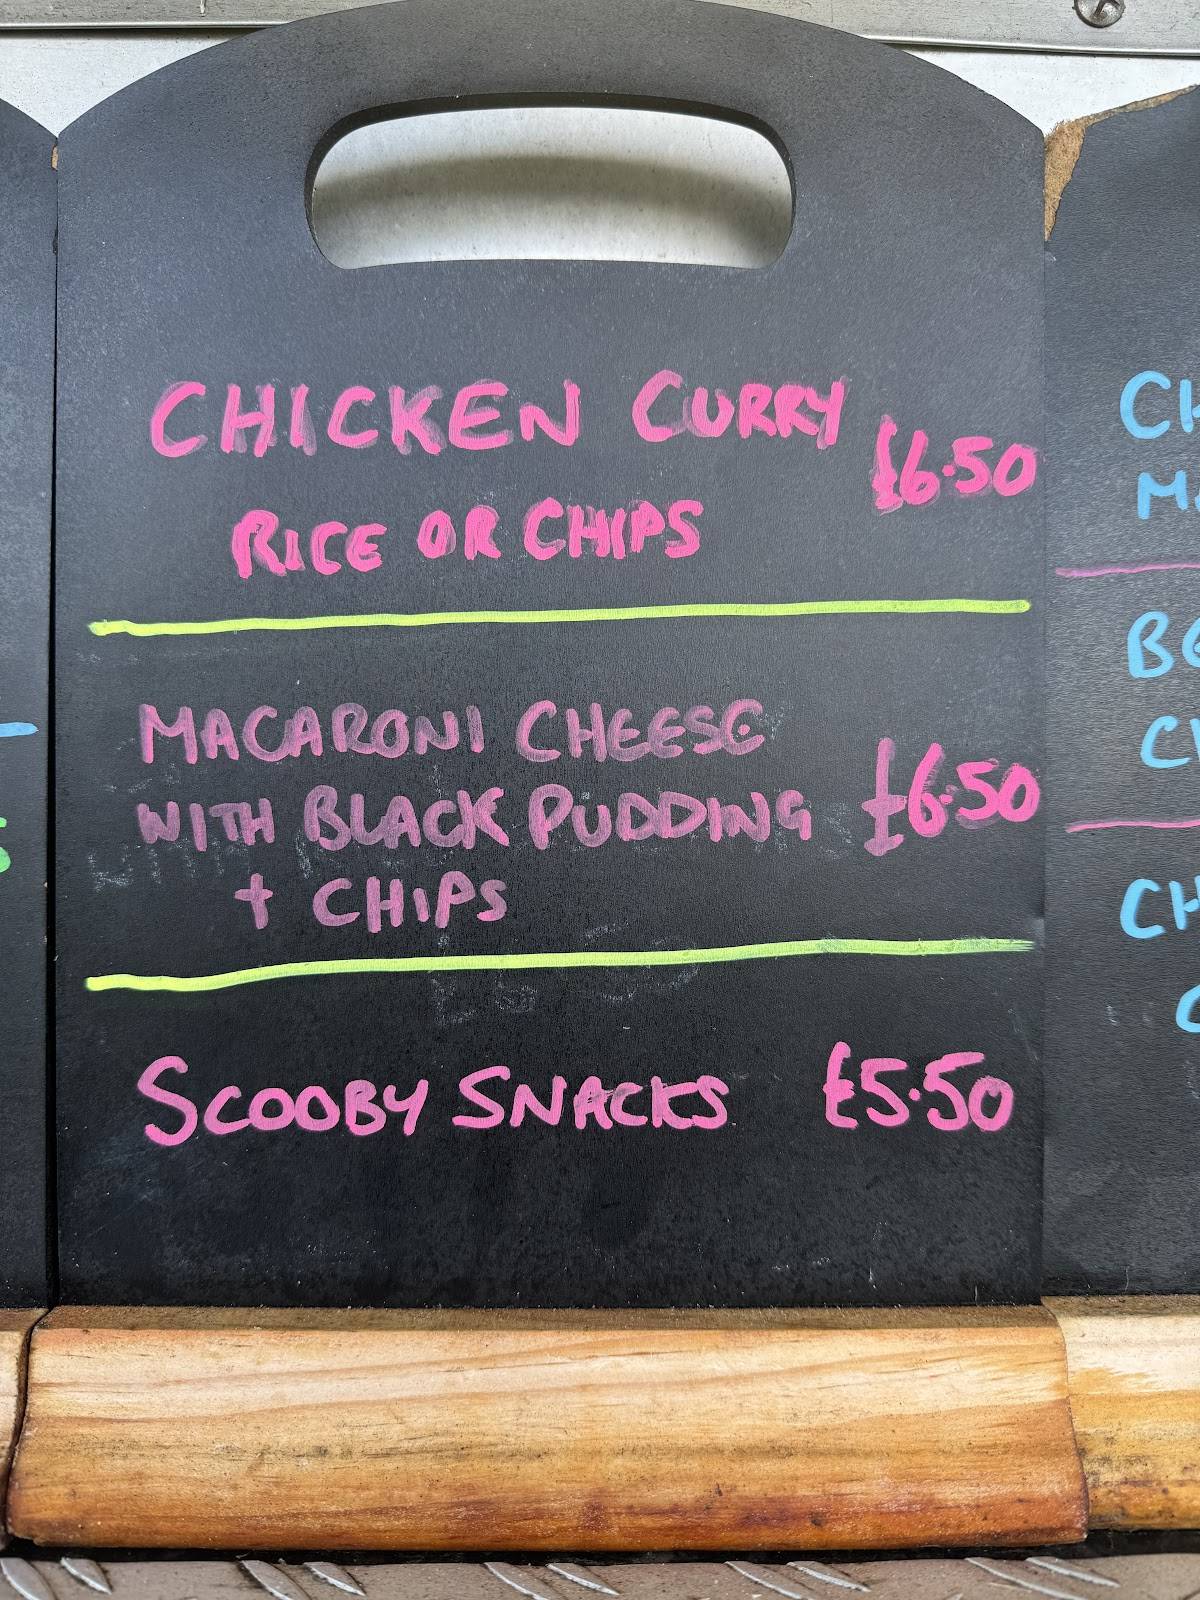 CHICKEN CURRY £6.50
RICE OR CHIPS
MACARONI CHEESE
WITH BLACK PUDDING £6.50
+ CHIPS
SCOOBY SNACKS £5.50